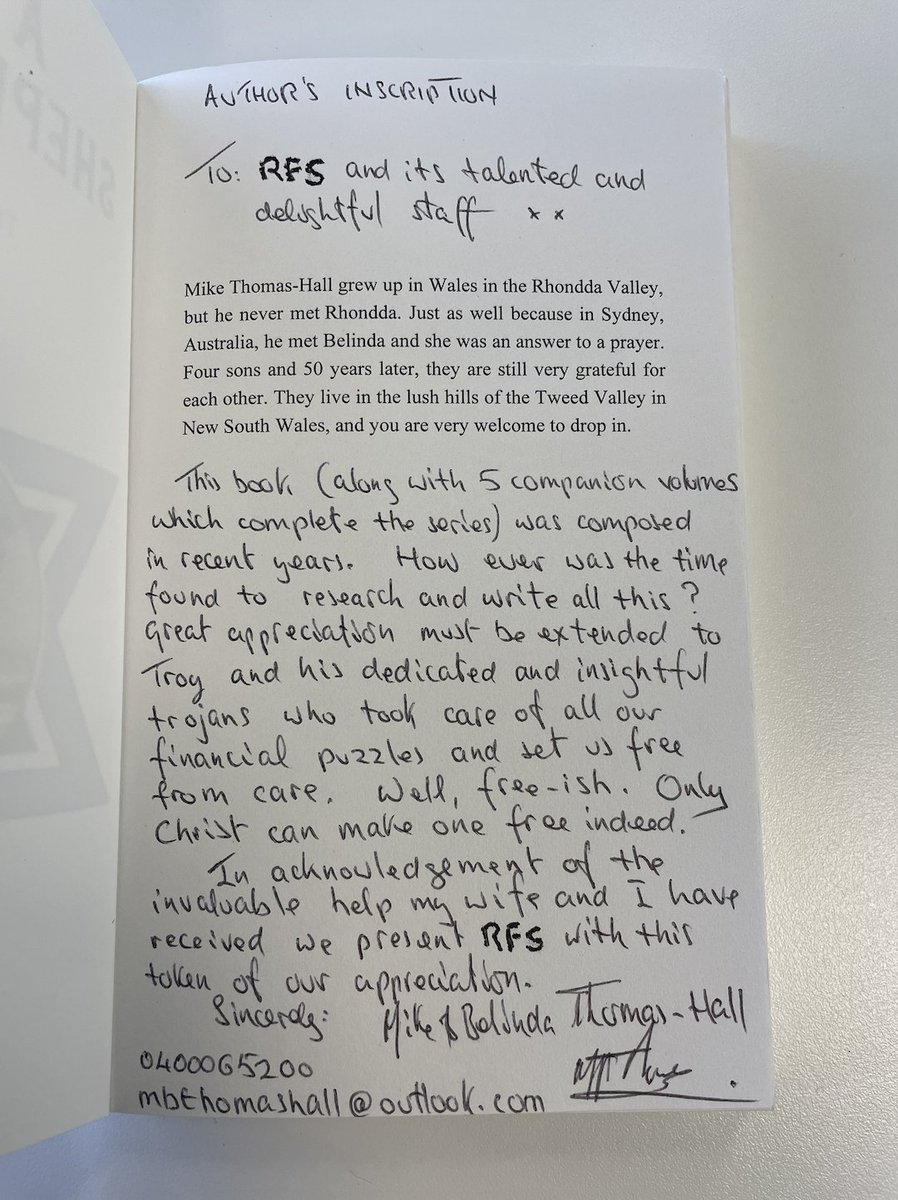 AUTHOR'S INSCRIPTION
To: RFS and its talented and
delightful staff x x
Mike Thomas-Hall grew up in Wales in the Rhondda Valley,
but he never met Rhondda. Just as well because in Sydney,
Australia, he met Belinda and she was an answer to a prayer.
Four sons and 50 years later, they are still very grateful for
each other. They live in the lush hills of the Tweed Valley in
New South Wales, and you are very welcome to drop in.
This book (along with 5 companion volumes
which complete the series) was composed
in recent years. How ever was the time
found to research and write all this?
Great appreciation must be extended to
Troy and his dedicated and insightful
trojans who took care of all our
financial puzzles and set us free
from care. Well, free-ish. Only
Christ can make one free indeed.
In acknowledgement of the
invaluable help my wife and I have
received we present RFS with this
token of our appreciation.
Sincerely: Mike & Belinda Thomas-Hall
0400065200
mbthomashall@outlook.com